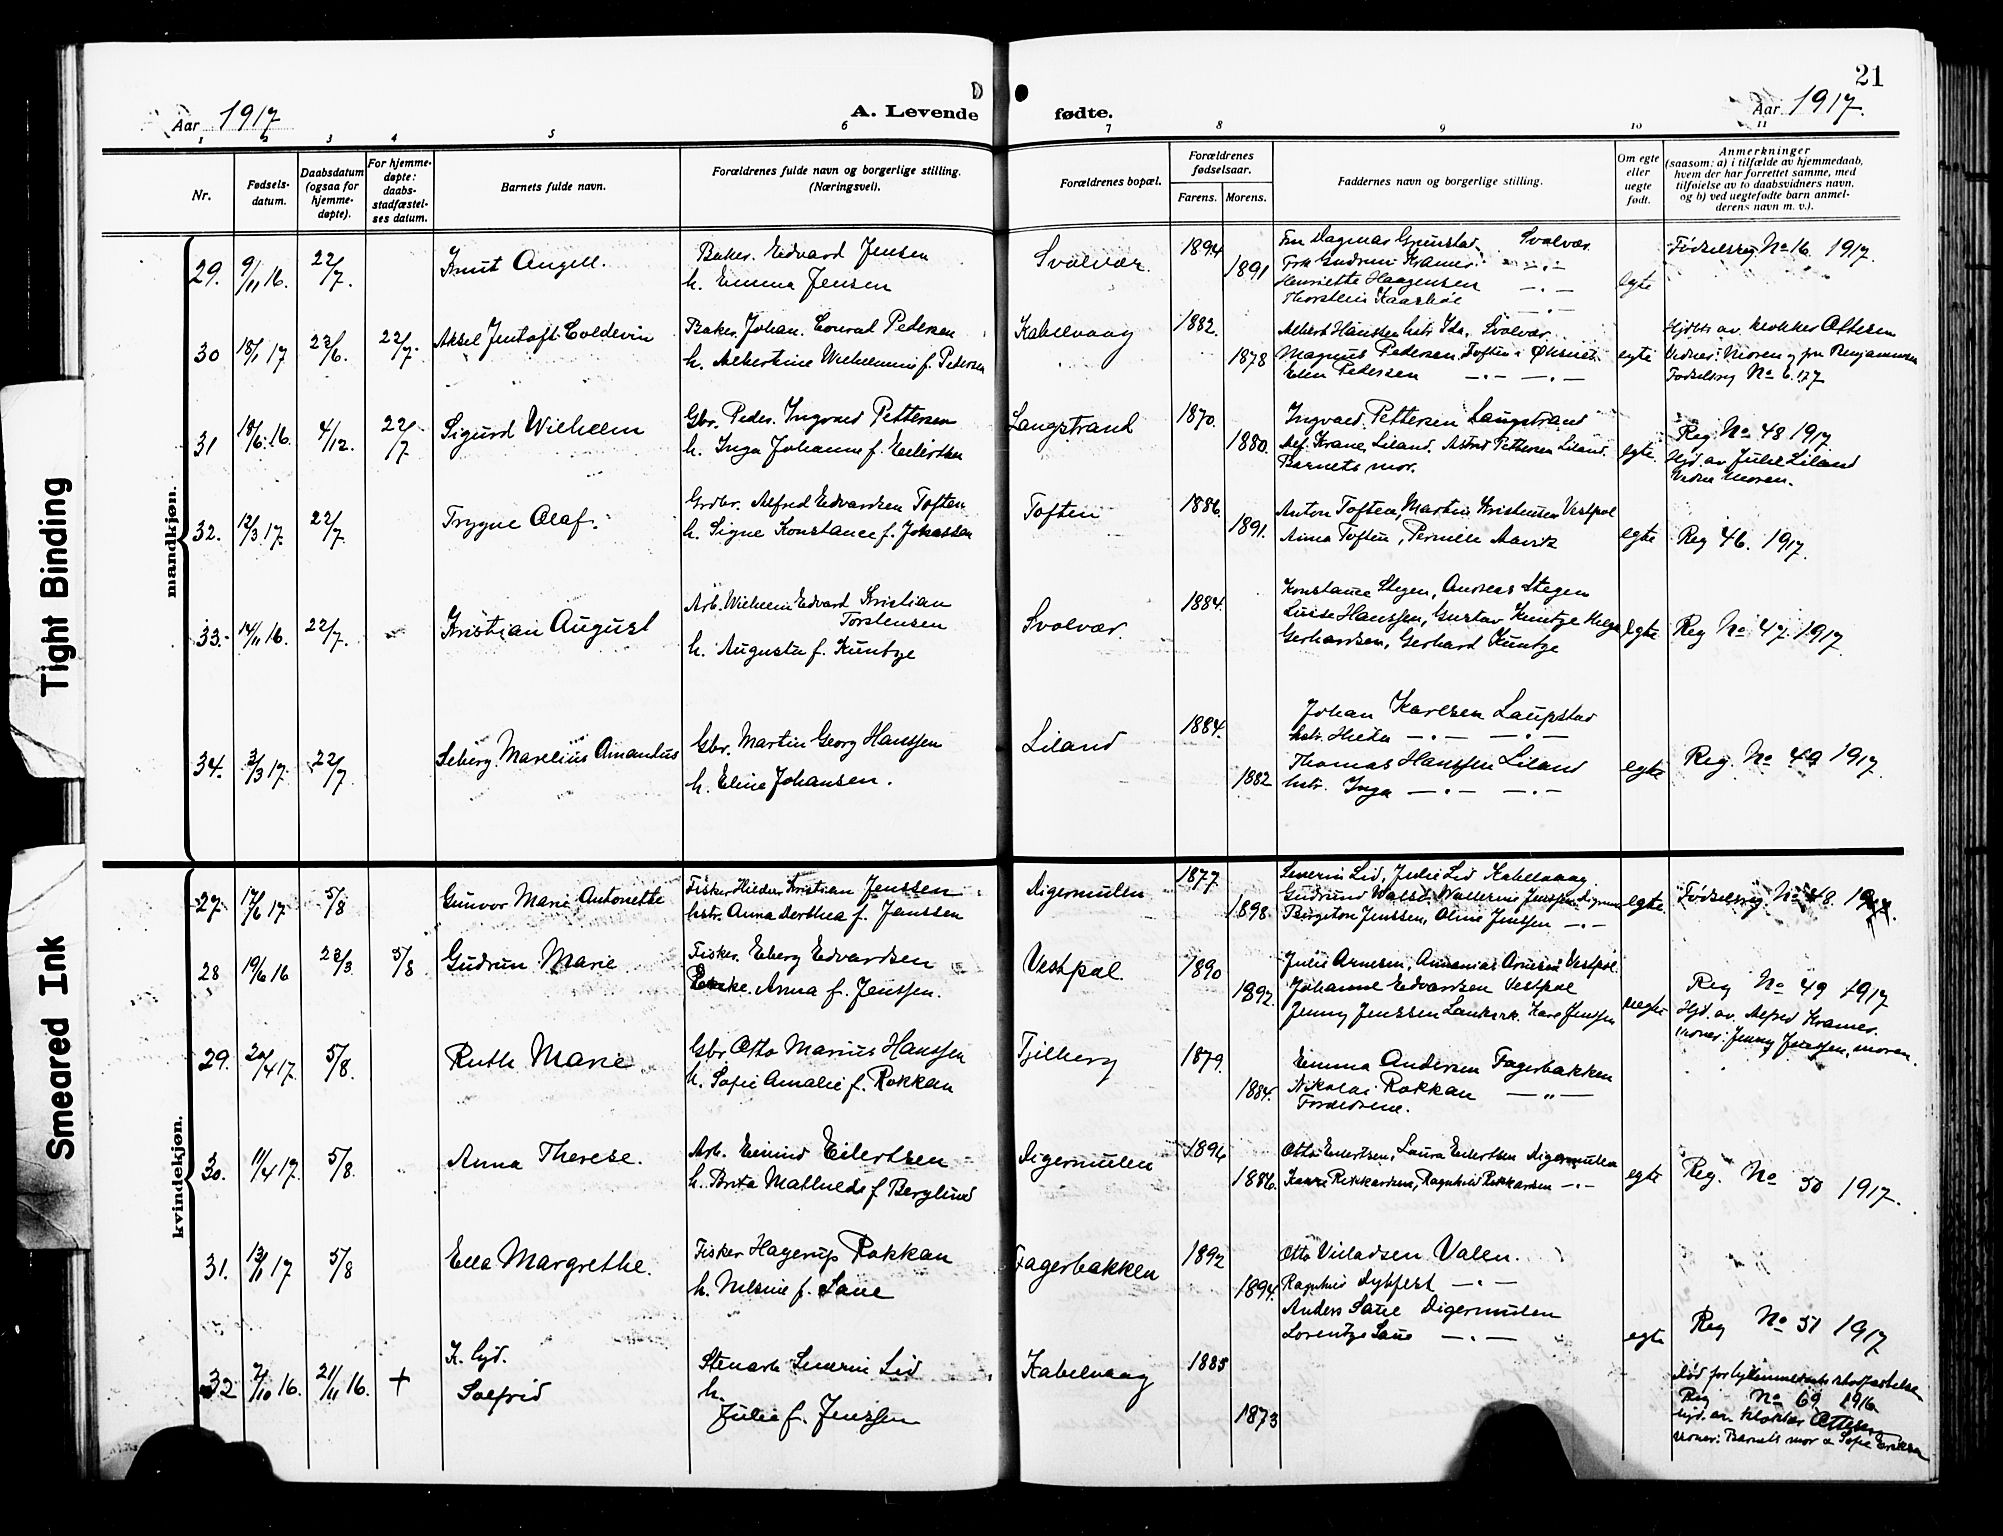 21
Aar 1917
A. Levende
fødte.
Aar 1917.
1 2 3 4 5 6 7 8 9 10 11
Nr.
Fødsels-
datum.
Daabsdatum
(ogsaa for
hjemme-
døpte).
For hjemme-
døpte:
daabs-
stadfæstel-
ses datum.
Barnets fulde navn.
Forældrenes fulde navn og borgerlige stilling.
(Næringsvei).
Forældrenes bopæl.
Forældrenes
fødselsaar.
Farens. Morens.
Faddernes navn og borgerlige stilling.
Om egte
eller
uegte
født.
Anmerkninger
(saasom: a) i tilfælde av hjemmedaab,
hvem der har forrettet samme, med
tilføielse av to daabsvidners navn,
og b) ved uegtefødte barn anmel-
derens navn m. v.).
mandkjøn.
29. 9/11 16. 22/7.
Knut Angell.
Baker. Edvard Jensen
h. Emma Jensen
Svolvær.
1894
1891
Svolvær.
Frk Gudrun Kramer. —.—
Henriette Haagensen —.—
egte
Fødselsreg No 16 1917.
30 18/1 17 23/6. 22/7.
Aksel Jentoft Coldevin
Baker. Johan. Conrad Pedersen
h. Albertine Wilhelmine f. Pedersen
Kabelvaag
1882.
1878
Albert Hanssen hstr Ida, Svolvær.
Magnus Pedersen, Toften i Øksnes
Elen Pedersen —.— —.—
egte
Hjdbt av klokker Ottesen
Vidner: Moren og fru Benjaminsen
Fødselsreg No 6. 177
31 18/6. 16. 4/12. 22/7
Sigurd Wilhelm
Gbr. Peder. Ingvald Pettersen
h. Inga Johanne f. Eilertsen
Langstrand
1870.
1880.
Ingvald. Pettersen Langstrand
Alf. Krane Liland. Astrid Pettersen Liland.
Barnets mor.
egte
Reg. No 48 1917
Hjd. av Julie Liland
Vidne Moren.
32. 12/3 17. 22/7.
Trygve Olaf.
Grdbr. Alfred Edvardsen Toften
h. Signe Konstance f. Johassen
Toften
1886.
1891.
Anton Toften, Martin Kristensen Vestpol
Anna Toften, Pernelle Aavik
egte
Reg 46. 1917.
33. 14/11 16. 22/7.
Kristian August
Arb. Wilhelm Edvard Kristian
Torstensen
h. Augusta f. Kuntze
Svolvær.
1884.
Konstance Stegen, Andreas Stegen
Luise Hanssen, Gustav Kuntze Helga
Gerhardsen, Gerhard Kuntze
egte
Reg No. 47. 1917.
34. 3/3 17. 22/7
Seberg. Marelius Amandus
Gbr. Martin Georg Hanssen
h. Eline Johansen.
Liland
1884.
1882
Johan Karlsen Laupstad
hstr. Hilda —.— —.—
Thomas Hanssen Liland
hstr. Inga —.— —.—
egte
Reg. No 49 1917.
kvindekjøn.
27. 17/6 17 5/8
Gunvor Marie Antonette
Fisker Hildor Kristian Jenssen.
hstr. Anna Dorthea f. Janssen
Digermulen
1877
1898.
Severin Lid, Julie Lid Kabelvaag
Birgiton Jenssen, Oline Jenssen —.—
egte
Fødselsreg No 48 1917.
28 19/6 16 23/3 5/8
Gudrun Marie
Fisker. Eberg Edvardsen
Anna f. Jenssen.
Vestpol
1890
1892.
Julie Arnesen, Annanias Arnesen Vestpol
Johanne Edvardsen Vestpol
uegte
Reg No 49 1917
Hjd. av. Alfred Kramer.
vidner: Jenny Jenssen, moren.
29. 20/4 17. 5/8.
Ruth Marie
Gbr. Otto Marius Hanssen
h. Sofie Amalie f. Rokkan
Tjelberg
1879.
1884.
Emma Andersen Fagerbakken
Nikolai Rokkan — „ —
Forældrene.
30. 11/4 17. 5/8.
Anna Therese.
Arb. Eivind Eilertsen
h. Brita Mathilde f Berglund
Digermulen
1894
1886.
Otto Eilertsen, Laura Eilertsen Digermulen
Kaare Rikkardsen, Ragnhild Rikkardsen —.—
egte
Reg. No 50 1917.
31. 13/1 17 5/8
Ella Margrethe.
Fisker Hagerup Rokkan
h. Nelsine f. Saue
Fagerbakken
1892
1894.
Otto Villadsen Valen.
Ragnhild Dybfest —.—
Anders Saue Digermulen
Lorentze Saue —.—
egte
Reg No 51 1917
32 7/10 16. 21/11 16. +
K. lyd.
Solfrid
Stenarb Severin Lid
h.
Julie f. Jenssen
Kabelvaag
1885
1873
Reg No 69 1916
hjd. av klokker Ottesen
vidner: Barnets mor & Sofie Eriksen
Tight Binding
Smeared Ink